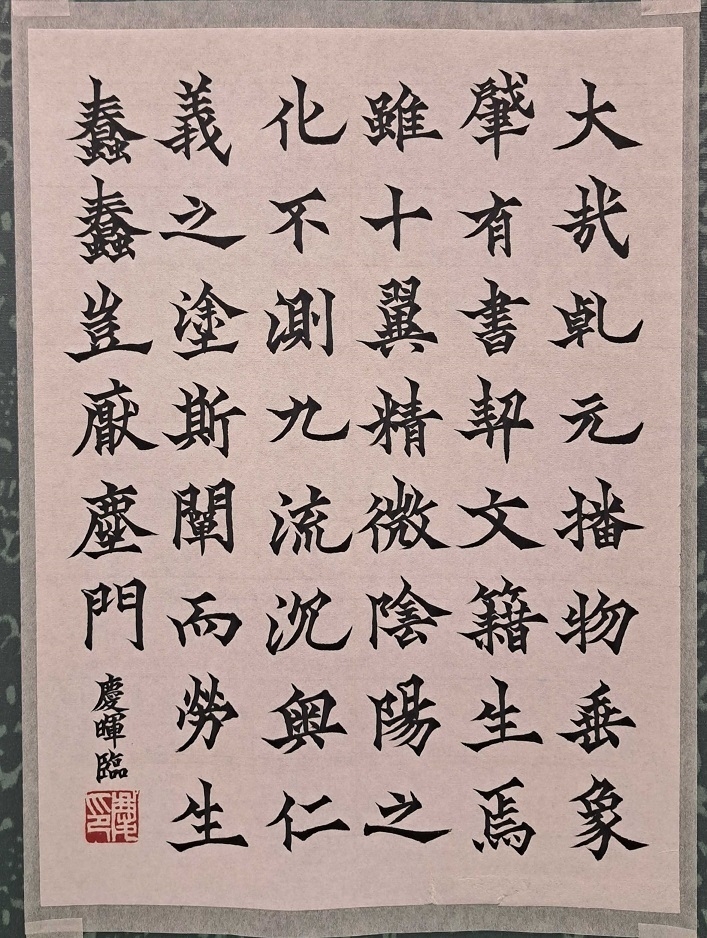 大哉乹元播物垂象
肇有書契文籍生焉
雖十翼精微陰陽之
化不測九流沉奥仁
義之塗斯闡而勞生
蠢蠢豈厭塵門
慶暉臨